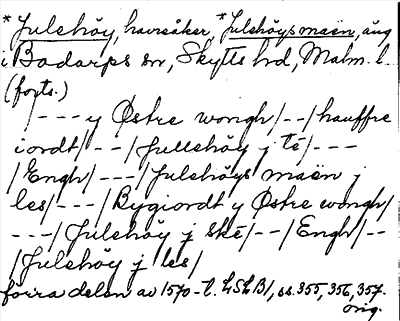 *Julehöy, havreåker, *Julehöys maén, äng
i Bodarps sn, Skytts hd, Malm. l.
(forts.)
/---y Østre wongh/--/hauffre
iordt/--/Jullehöy j té/---
/Engh/---/Julehöys maén j
les/---/Bygiordt y Østre wongh/
---/Julehöy j skë/--/Engh/--
/Julehöy j les/
förra delen av 1570-t. LSLB1, ss. 355, 356, 357.
orig.